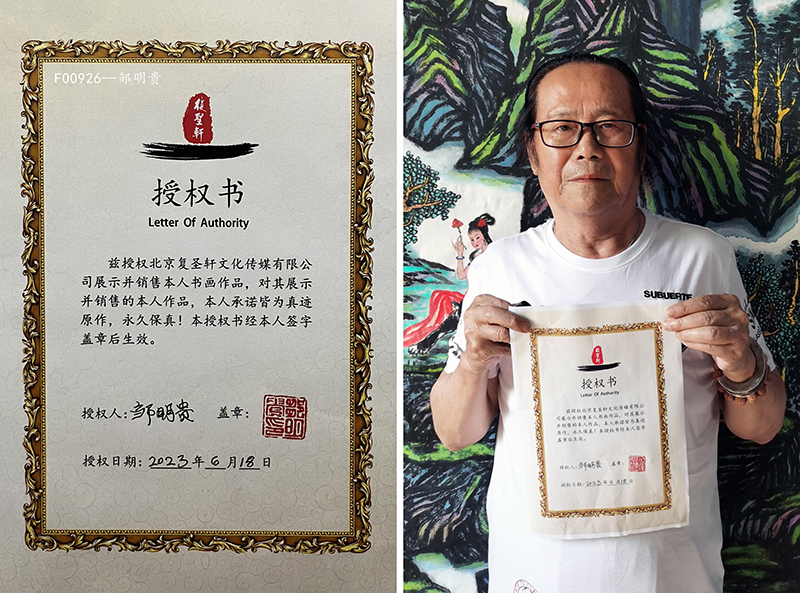 F00926--邹明贵
复圣轩
授权书
Letter Of Authority
兹授权北京复圣轩文化传媒有限公
司展示并销售本人书画作品，对其展示
并销售的本人作品，本人承诺皆为真迹
原作，永久保真！本授权书经本人签字
盖章后生效。
授权人：邹明贵 盖章：
授权日期：2023年6月18日
SUBUERTE
授权书
Letter Of Authority
兹授权北京复圣轩文化传媒有限公
司展示并销售本人书画作品，对其展示
并销售的本人作品，本人承诺皆为真迹
原作，永久保真！本授权书经本人签字
盖章后生效。
授权人：邹明贵 盖章：
授权日期：2023年6月18日